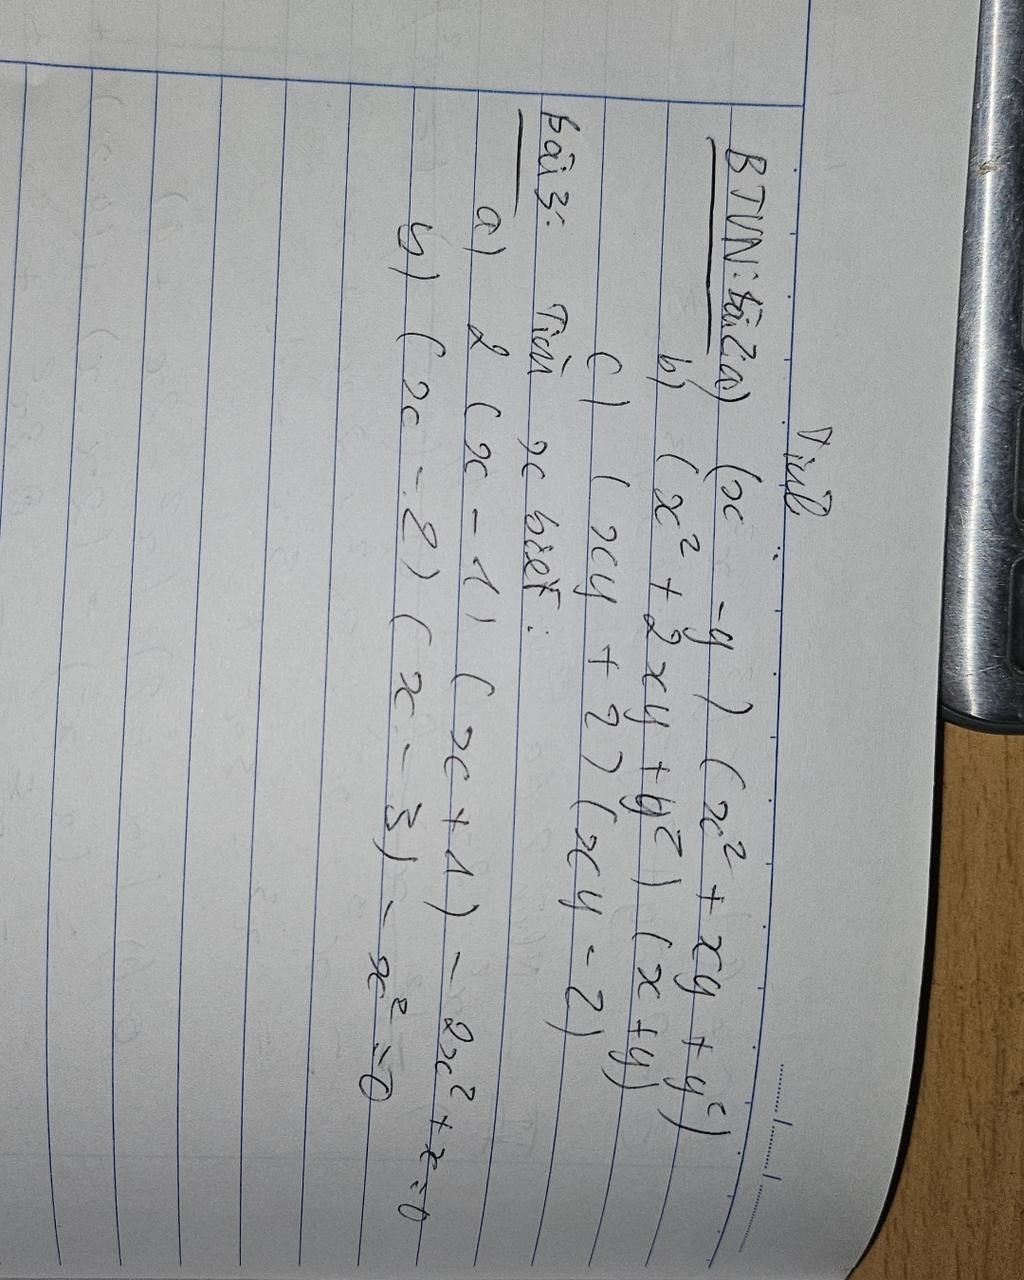 Tính
BTVN: Bài 2: a) (x - y) (x² + xy + y²)
b) (x² + 2xy + y²) (x + y)
c) (xy + 2) (xy - 2)
Bài 3: Tìm x biết:
a) 2 (x - 1) (x + 1) - 2x² + x = 0
b) (x - 2) (x - 3) - x² = 0